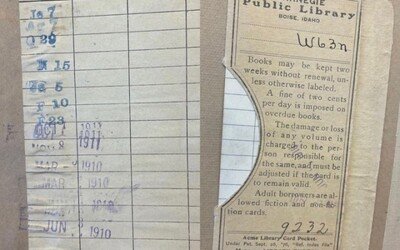 Ja 7
Ag 7
O 29
N 15
Ja 5
F 10
F 23
OCT 1911
NOV 8 1911
MAR 1910
MAR 1910
MAY 1910
JUN 1910
CARNEGIE
Public Library
BOISE, IDAHO
W63n
Books may be kept two
weeks without renewal, un-
less otherwise labeled.
A fine of two cents
per day is imposed on
overdue books.
The damage or loss
of any volume is
charged to the per-
son responsible for
the same, and must be
adjusted if the card is
to remain valid.
Adult borrowers are al-
lowed fiction and non-fic-
tion cards.
9232
Acme Library Card Pocket.